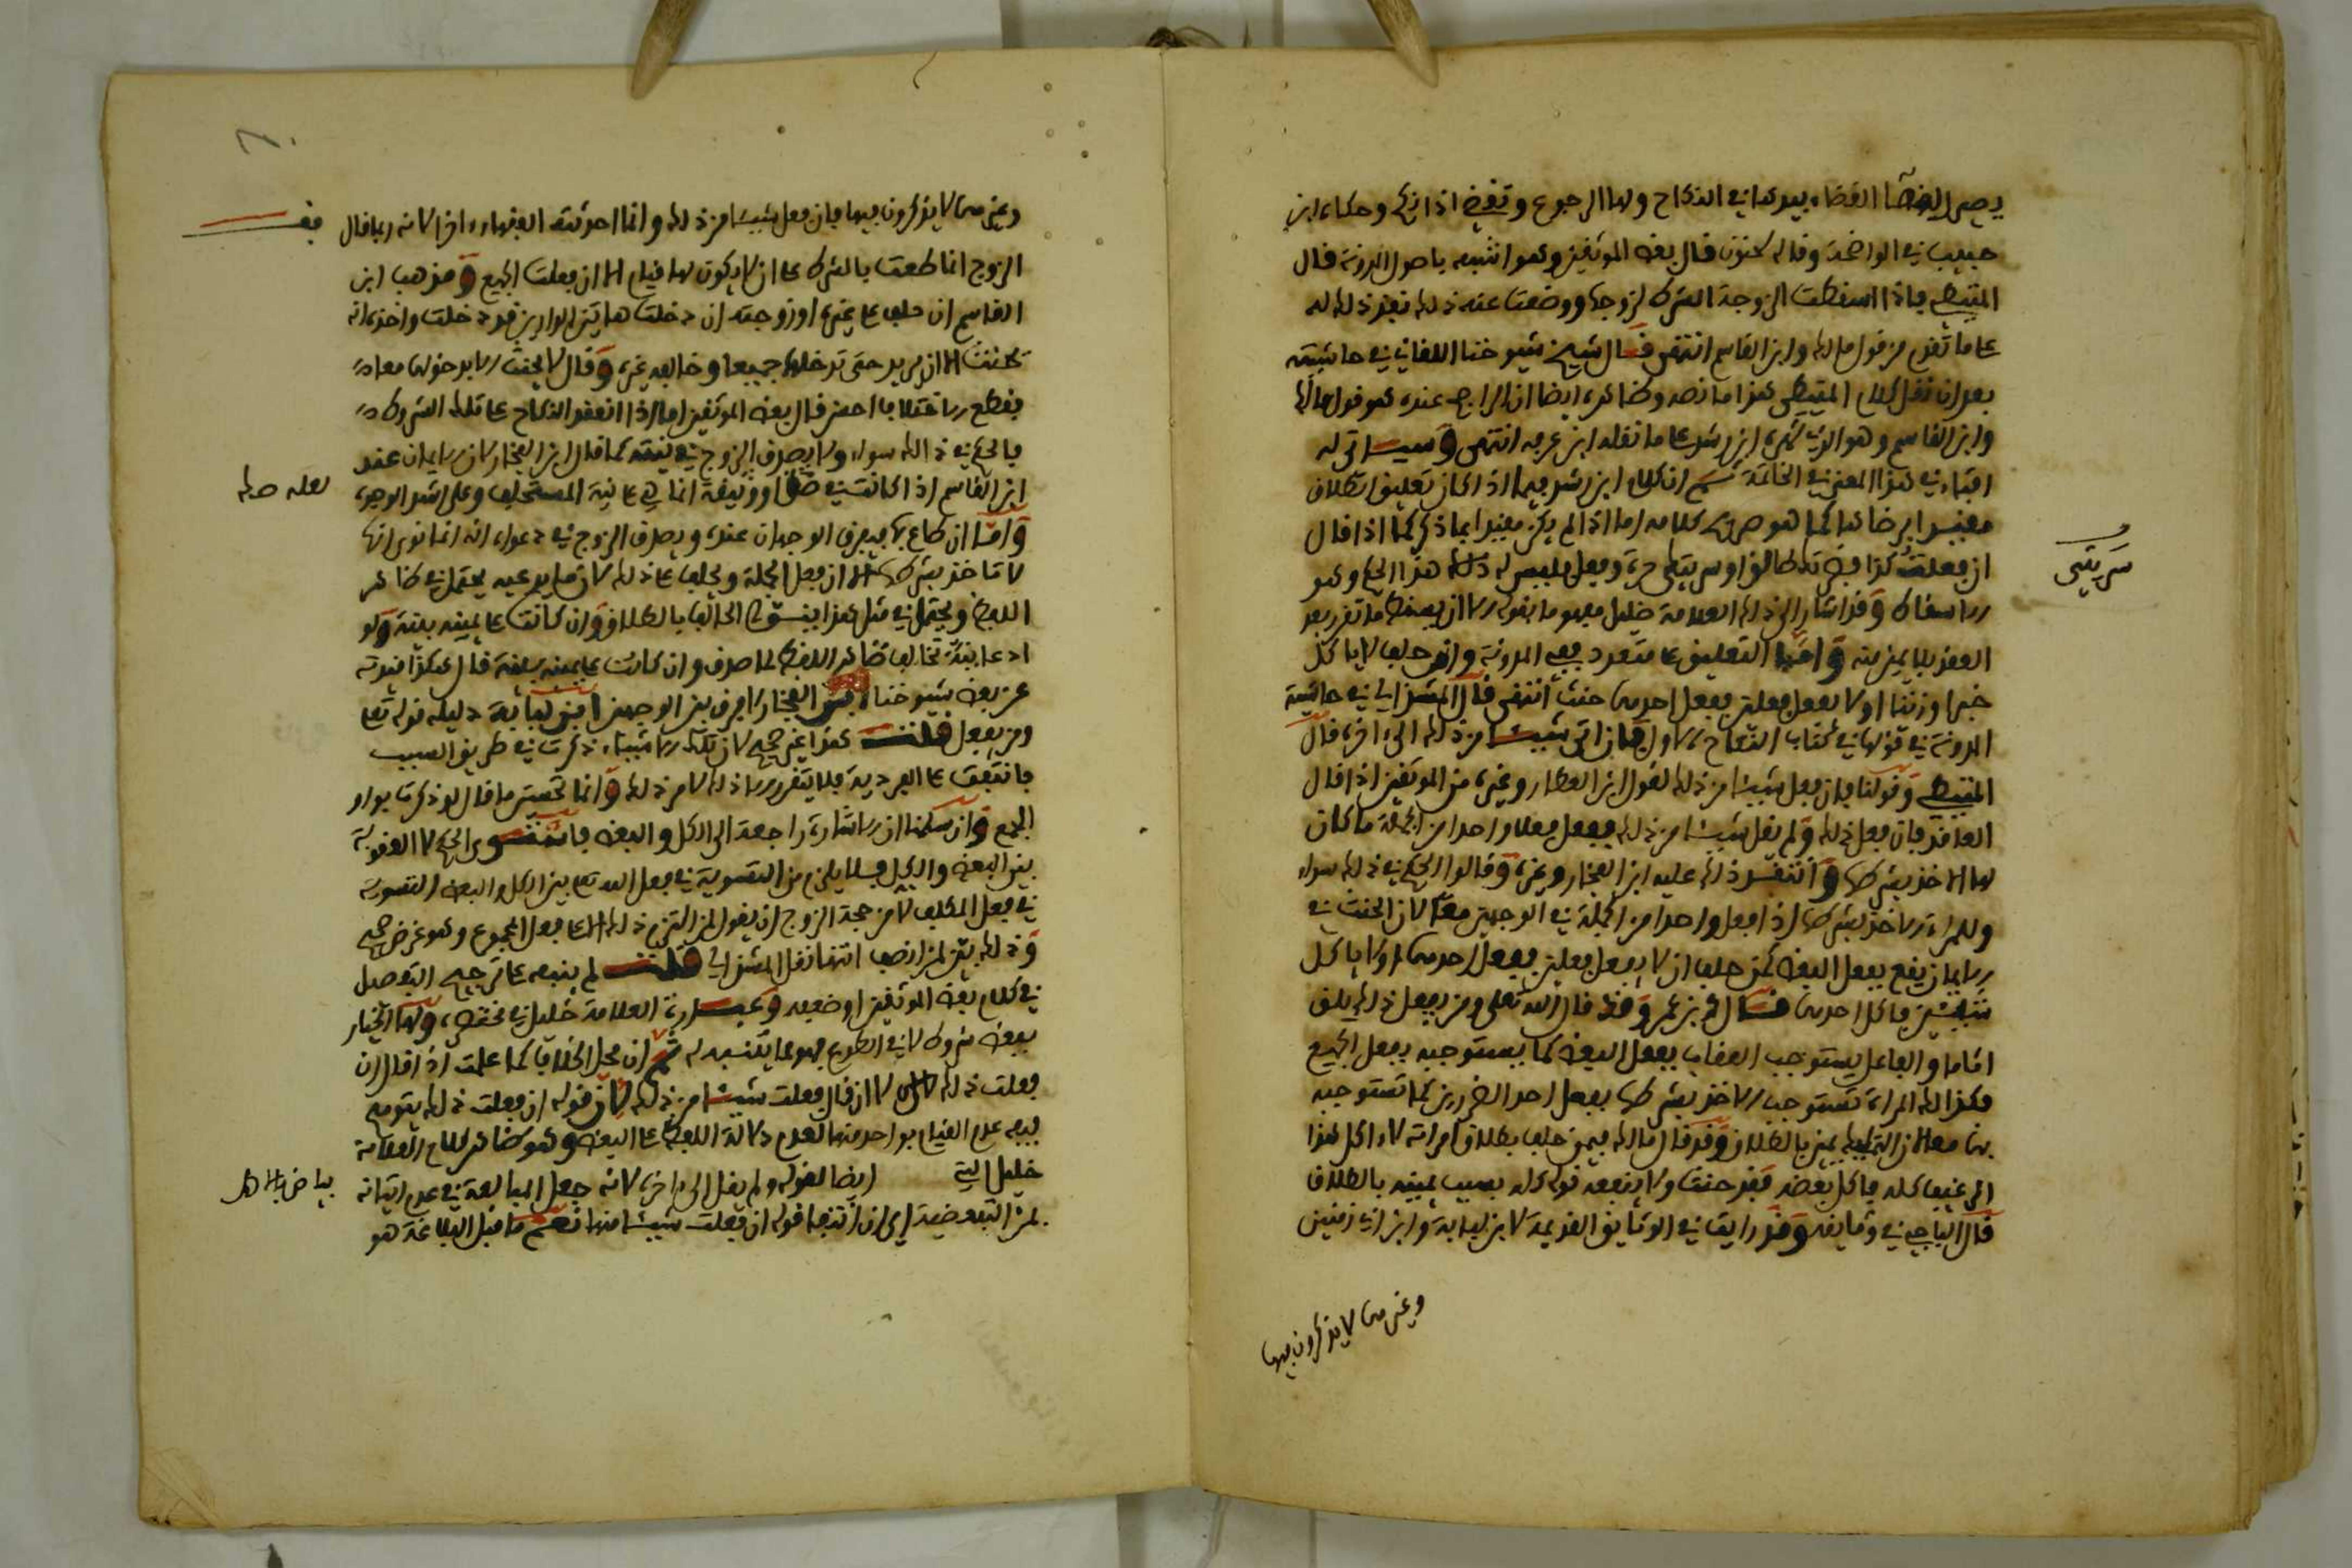 يصير اليها القضاء بيدها في النكاح ولها الرجوع وتقضي اذا نكح وحكاه ابن
حبيب في الواضحة وقاله سحنون قال بعض الموثقين وهو اشبه باصول المدونة قال
المتيطي فاذا اسقطت الزوجة الشرط لزوجها ووضعت عنه ذلك نفذ ذلك له
على ما تقدم من قول مالك وابن القاسم انتهى قال شيخ شيوخنا اللقاني في حاشيته
بعد ان نقل كلام المتيطي هذا ما نصه وظاهره ايضا ان الراجح عنده هو قول مالك
وابن القاسم وهو الذي شهره ابن رشد على ما نقله ابن عرفة انتهى وسياتي له
افتاء في هذا المعنى في الخاتمة ثم ان كلام ابن رشد فيما اذا كان تعليق الطلاق
مقيدا برضاها كما هو صريح كلامه اما اذا لم يكن مقيدا بما ذكر كما اذا قال
ان فعلت كذا فضرتك طالق او سريتي حرة وفعل فليس له هذا الحكم وهو
سريتي
الاسقاط وقد اشار الى ذلك العلامة خليل بمفهوم ما بقوله الا ان يسقط ما تقرر بعد
العقد بلا يمين منه واما التعليق على متعدد ففي المدونة وان حلف لا ياكل
خبزا وزيتا او لا يفعل فعلين ففعل احدهما حنث انتهى قال المشذالي في حاشية
المدونة في قولها في كتاب النكاح الاول فان اتى شيئا من ذلك الى اخره قال
المتيطي وقولنا فان فعل شيئا من ذلك لقول ابن العطار وغيره من الموثقين اذا قال
العاقد فان فعل ذلك ولم يقل شيئا من ذلك ففعل فعلا واحدا من الجملة ما كان
لها الاخذ بشرطها وانتقد ذلك عليه ابن الفخار وغيره وقالوا الحكم في ذلك سواء
وللمراة الاخذ بشرطها اذا فعل واحدا من الجملة في الوجهين معا لان الحنث في
الايمان يقع بفعل البعض كمن حلف ان لا يفعل فعلين ففعل احدهما او لا ياكل
شيئين فاكل احدهما قال محمد بن عمر وقد قال الله تعالى ومن يفعل ذلك يلق
اثاما والفاعل يستوجب العقاب بفعل البعض كما يستوجبه بفعل الجميع
فكذلك المراة تستوجب الاخذ بشرطها بفعل احد الضررين كما تستوجبه
بهما معا لان التمليك يمين بالطلاق وقد قال مالك فيمن حلف بطلاق امراته لا اكل هذا
الرغيف كله فاكل بعضه فقد حنث ولا ينفعه قوله كله بسبب يمينه بالطلاق
قال الباجي في وثائقه وقد رايت في الوثائق القديمة لابن لبابة وابن ابي زمنين
وغيرهما لا يذكرون فيها
وغيرهما لا يذكرون فيها فان فعل شيئا من ذلك وانما احدثته الفقهاء اخرا لانه ربما قال
الزوج انما طعت بالشرط على ان لا يكون لها قيام الا ان فعلت الجميع ومذهب ابن
القاسم ان حلف على غيره او زوجته ان دخلت هاتين الدارين فقد دخلت واحدة انه
تحنث الا ان يريد حتى تدخلها جميعا وخالفه غيره وقال لا يحنث الا بدخولهما معا
بقطع الاختلاف احسن قال بعض الموثقين اما اذا انعقد النكاح على تلك الشروط
فالحكم في ذلك سواء ولا يصدق الزوج في نيته كما قال ابن الفخار لان الايمان عند
ابن القاسم اذا كانت في حق او وثيقة انما هي على نية المستحلف وعلى اشد الوجوه
لعله حق
واما ان طاع بها فيفرق الوجهان عنده ويصدق الزوج في دعواه انه انما نوى انها
لا تاخذ بشرطها الا ان فعل الجملة ويحلف على ذلك لان ما يدعيه يحتمل في ظاهر
اللفظ ويحتمل في مثل هذا الحالف بالطلاق وان كانت على يمينه بينة ولو
ادعا نية تخالف ظاهر اللفظ لما صدق وان كانت على يمينه بينة قال هكذا قيدته
عن بعض شيوخنا ابن الفخار لا فرق بين الوجهين ابن لبابة دليله قوله تعالى
ومن يفعل قلت هذا غير صحيح لان تلك الاشياء ذكرت في طريق السبب
بل هي على الفردية فلا يتقرر الا ذلك لا من ذلك وانما تحسن ما قال لو ذكرت بواو
الجمع وان سلمنا ان الاشارة راجعة الى الكل والبعض فاستوى الحكم لا العقوبة
بين البعض والكل فلا يلزم من التسوية في فعل الله تعالى بين الكل والبعض التسوية
في فعل المكلف لان من حجة الزوج ان يقول لم التزم ذلك الا على فعل المجموع وهو غرض صحيح
وذلك بين لمن انصف انتهى نقل المشذالي قلت لم ينبه على ترجيح التفصيل
في كلام بعض الموثقين او ضعفه وعبارة العلامة خليل في مختصره ولها الخيار
ببعض شروط لا في الطوع فهو مما يتنبه له ثم ان محل الخلاف كما علمت اذا قال ان
فعلت ذلك لا ان قال فعلت شيئا من ذلك لان قوله ان فعلت ذلك يتوهم
فيه عدم القيام بواحد منهما لعدم دلالة اللفظ على البعض وهو ظاهر كلام العلامة
خليل التي ايضا لقوله ولم يقل الى اخره لانه جعل المبالغة في عدم اتيانه
بياض بالاصل
بمن التبعيضية اي ان انتفى قوله ان فعلت شيئا منها فعلم ما قبل المبالغة هو